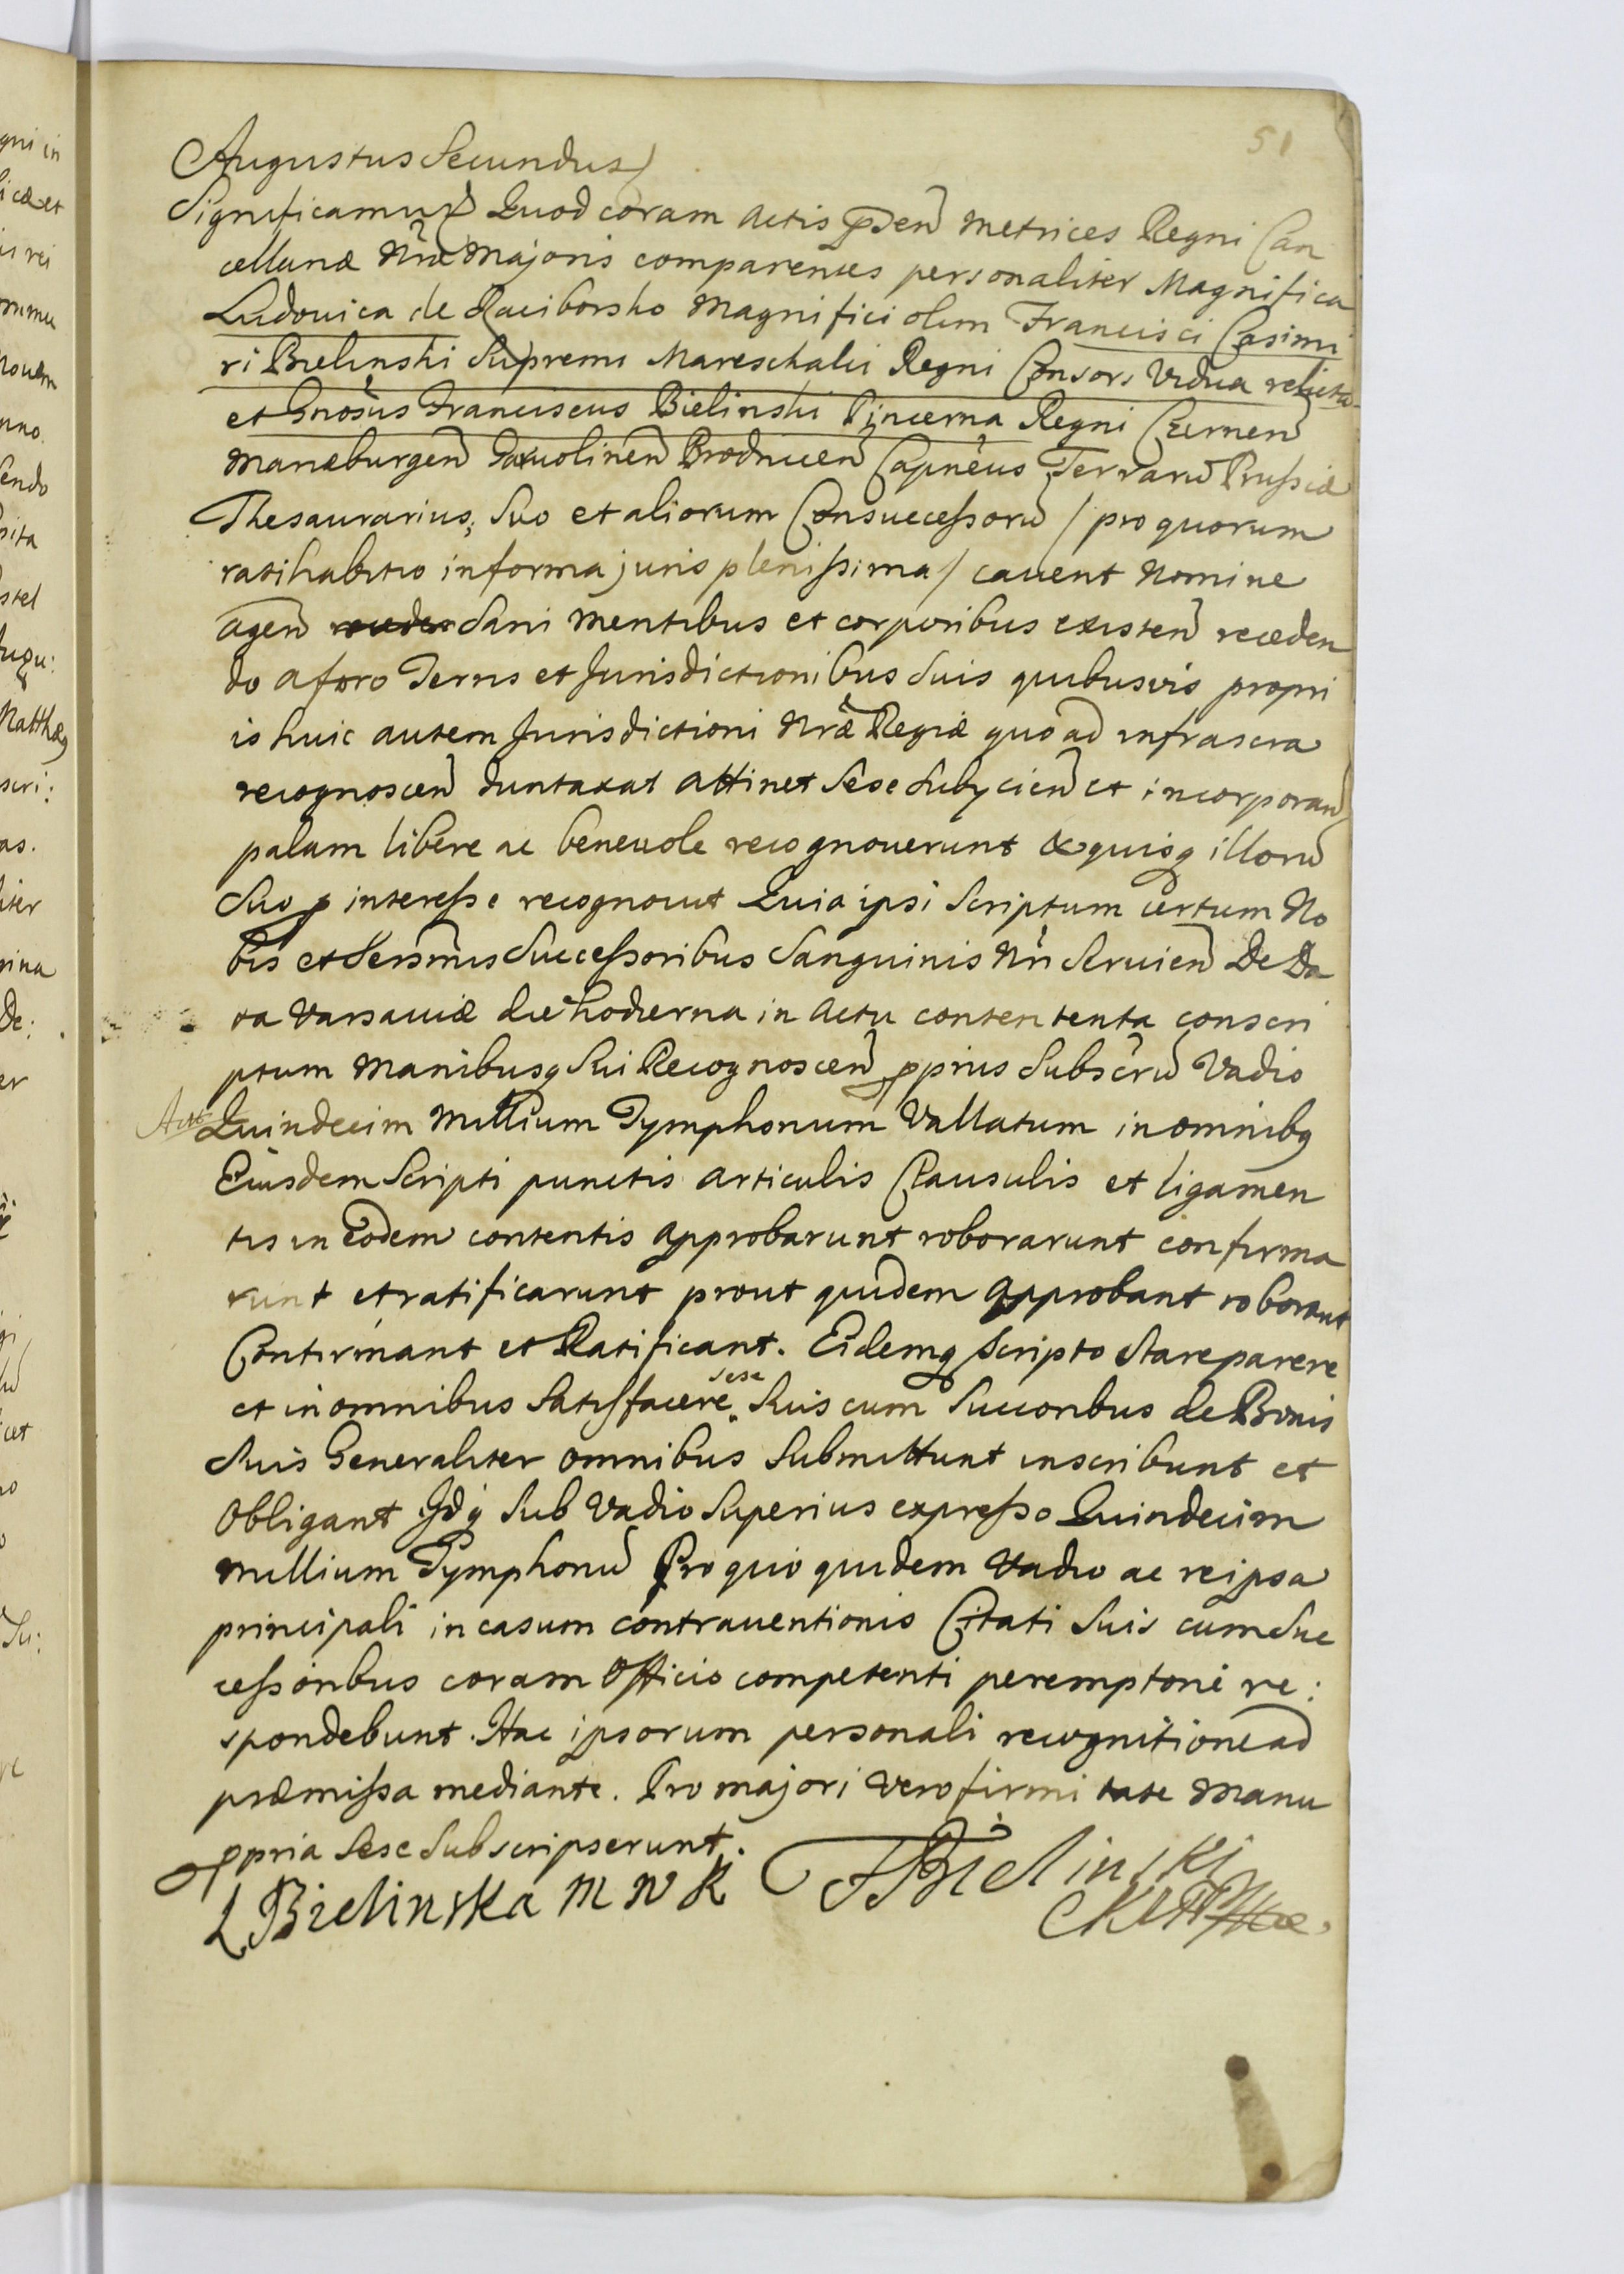 51
Augustus Secundus
Significamus Quod coram Actis pñden Metrices Regni Can
cellariæ Nræ Majoris comparentes personaliter Magnifica
Ludovica de Raciborsko Magnifici olim Francisci Casimi
ri Bielinski Supremi Mareschalci Regni Consors Vidua relicta
et Gnosus Franciscus Bielinski Pincerna Regni Czernen
Marieburgen Garvolinen Brodnicen Capneus Terraru Prussiæ
Thesaurarius, Suo et aliorum Consuccessoru / pro quorum
ratihabitio in forma juris plenissima / cavent Nomine
agen Sani mentibus et corporibus existen receden
do a foro Terris et Jurisdictionibus Suis quibusvis propri
is huic autem Jurisdictioni Nræ Regiæ quo ad infrascra
recognoscen duntaxat attinet Sese Subycien et incorporan
palam libere ac benevole recognoverunt & quisq illoru
Suo p interesse recognovit Quia ipsi Scriptum certum No
bis et Serenmis Successoribus Sanguinis Nri Servien De Da
ta Varsaviæ die hodierna in Actu contententa conscri
ptum Manibusq Sui Recognoscen ppriis Subscru Vadio
Quindecim Millium Tymphonum Vallatum in omnibq
Eiusdem Scripti punctis articulis Clausulis et ligamen
tis in Eodem contentis approbarunt roborarunt confirma
runt et ratificarunt prout quidem approbant roborant
Confirmant et Ratificant. Eidemq Scripto Stare parere
et in omnibus Satisfacere sese Suis cum Succoribus de Bonis
Suis Generaliter omnibus Submittunt inscribunt et
Obligant Idq Sub Vadio Superius expresso Quindecim
Millium Tymphonu Pro quo quidem Vadio ac re ipsa
principali in casum contraventionis Citati Suis cum Suc
cessoribus coram Officio competenti peremptorie re:
spondebunt. Hac ipsorum personali recognitione ad
præmissa mediante. Pro majori vero firmitate Manu
ppria Sese Subscripserunt.
L Bielinska M W K F Bielinski